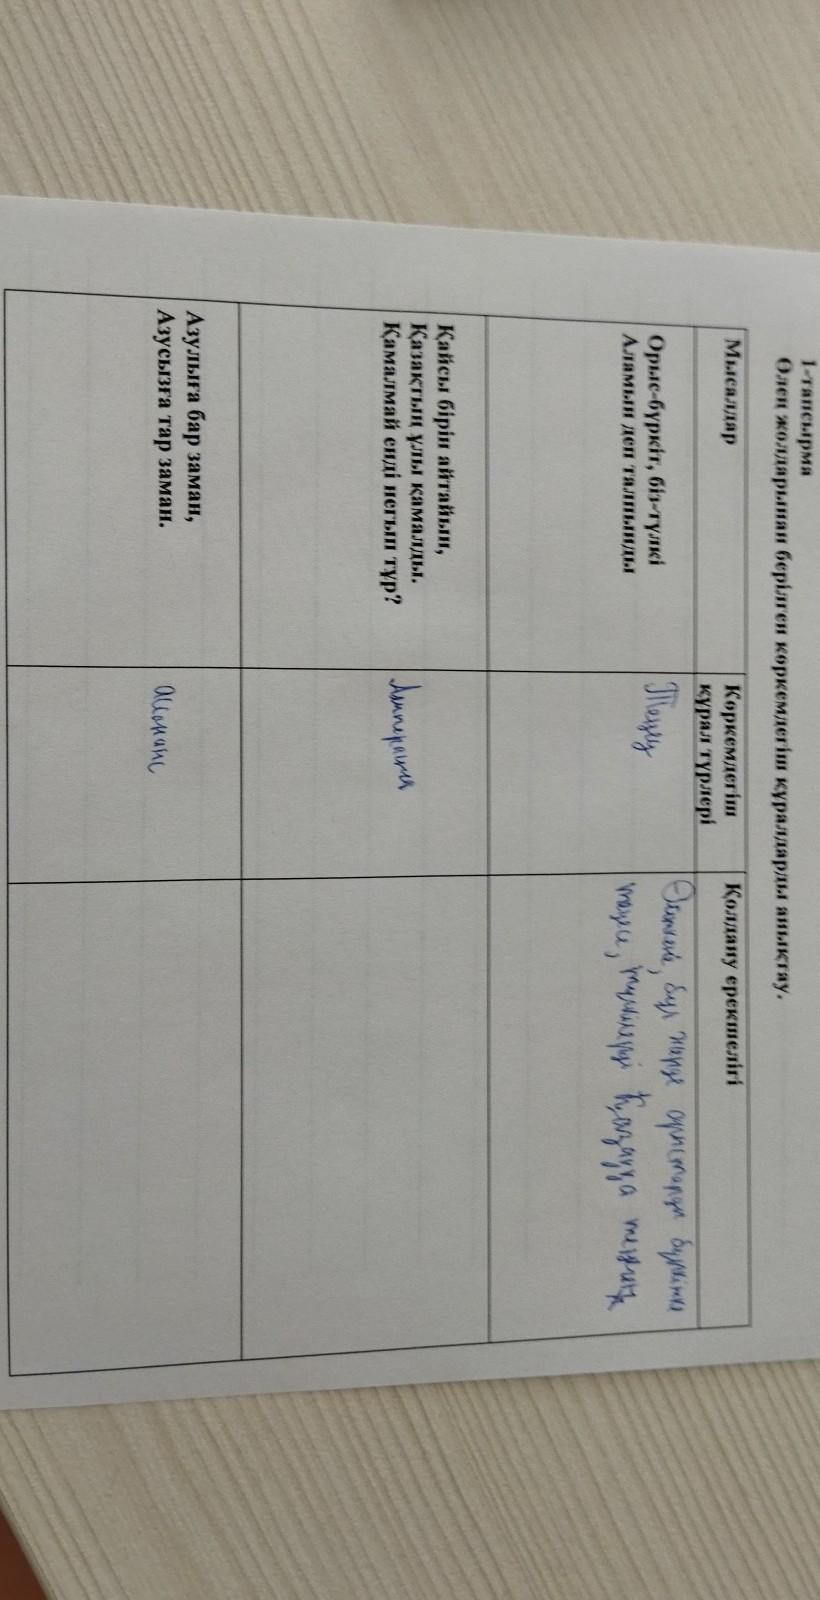 1-тапсырма
Өлең жолдарынан берілген көркемдегіш құралдарды анықтау.
Мысалдар
Көркемдегіш
құрал түрлері
Қолдану ерекшелігі
Орыс-бүркіт, біз-түлкі
Аламын деп талпынды
Теңеу
Өйткені, бұл жерде орыстарды бүркітке
теңесе, түлкілерді қазаққа теңеген
Қайсы бірін айтайын,
Қазақтың ұлы қамалды.
Қамалмай енді негып тұр?
Азулыға бар заман,
Азусызға тар заман.
ассонанс